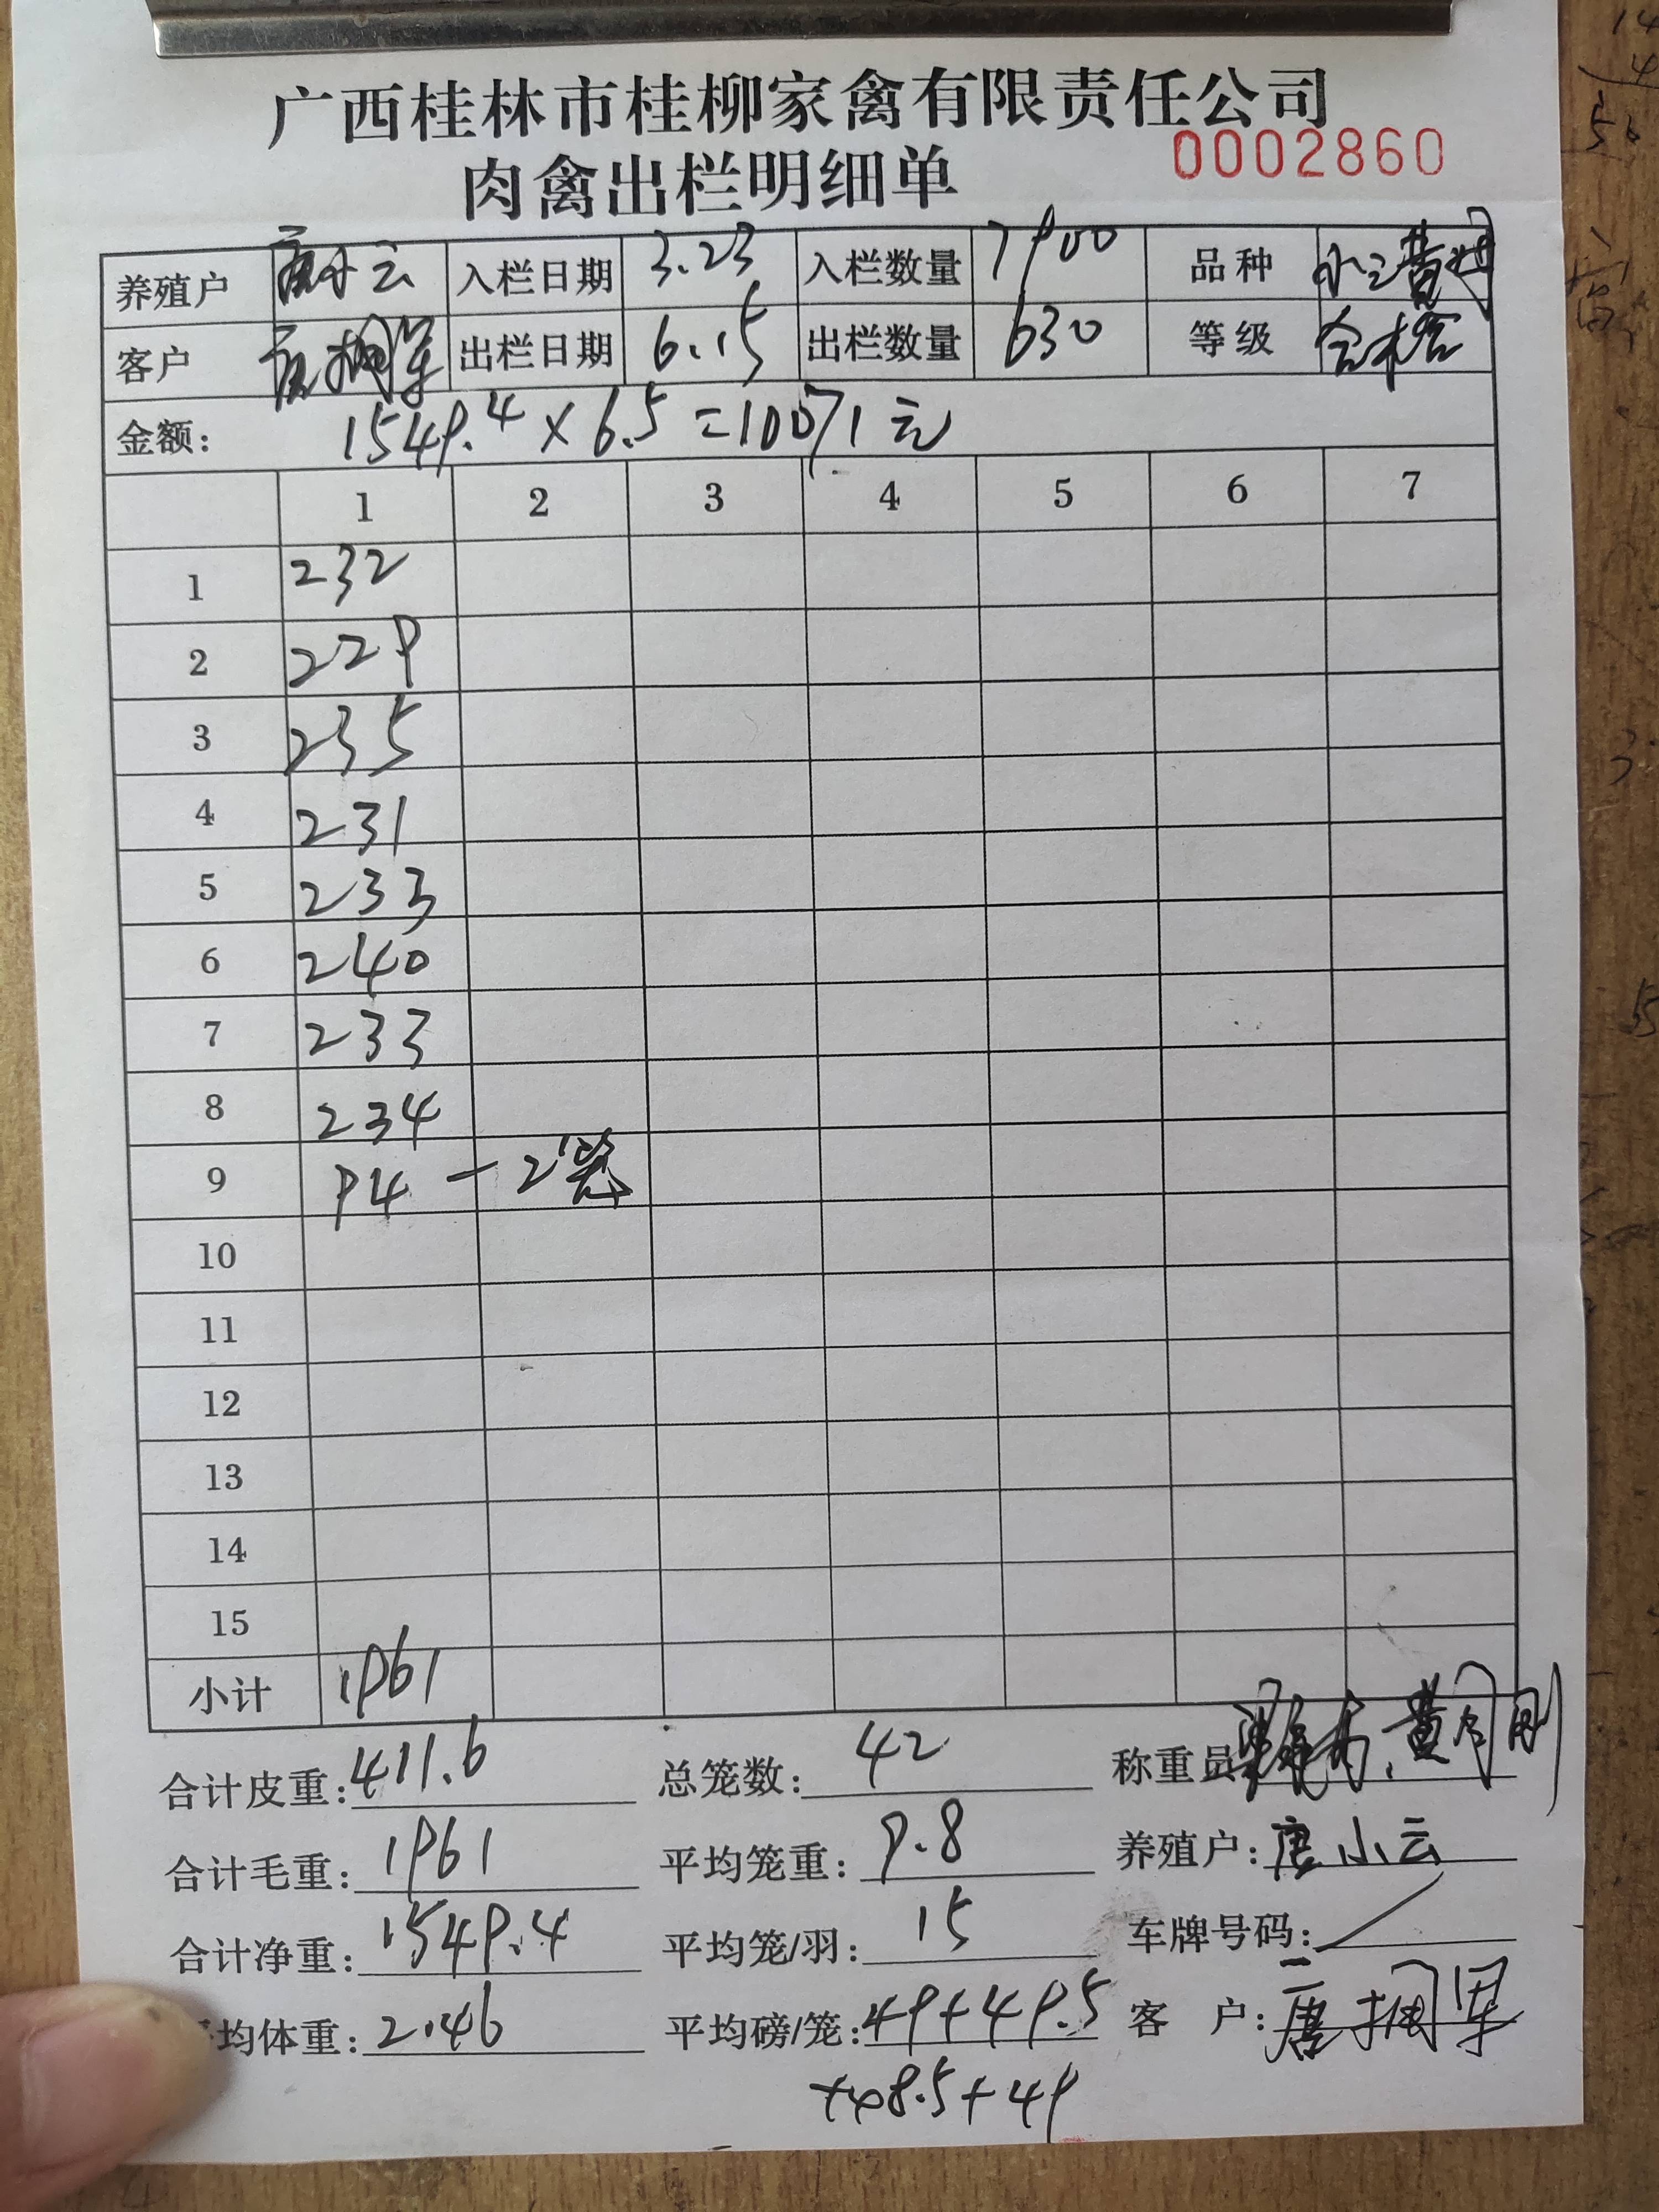 广西桂林市桂柳家禽有限责任公司
肉禽出栏明细单 0002860
养殖户 唐小云 入栏日期 3.23 入栏数量 7900 品种
客户 唐拥军 出栏日期 6.15 出栏数量 630 等级 合格
金额: 1549.4 × 6.5 = 10071元
1 2 3 4 5 6 7
1 232
2 229
3 235
4 231
5 233
6 240
7 233
8 234
9 94 — 2笼
10
11
12
13
14
15
小计 1961
合计皮重: 411.6 总笼数: 42 称重员
合计毛重: 1961 平均笼重: 9.8 养殖户: 唐小云
合计净重: 1549.4 平均笼/羽: 15 车牌号码: /
均体重: 2.46 平均磅/笼: 49+49.5 客 户: 唐拥军
+48.5+49